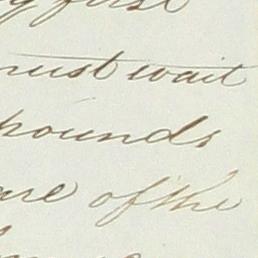 first
must wait
pounds
of the